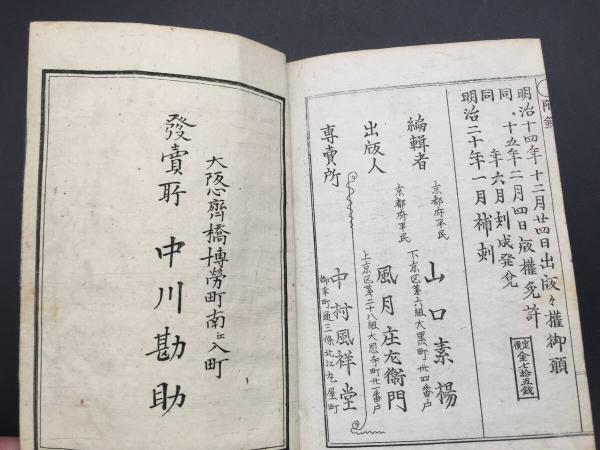 附錄
明治十四年十二月廿四日出版々權御願
同 十五年二月四日版權免許
同 年六月刻成發兌
明治二十年一月補刻
定價金七拾五錢
編輯者 京都府平民 山口素楊
下京区第六組大黒町卅四番戸
出版人 京都府平民 風月庄左衞門
上京区第二十八組大恩寺町廿一番戸
専賣所 中村風祥堂
御幸町通三條北江丸屋町
大阪心齊橋博勞町南江入町
發賣所 中川勘助